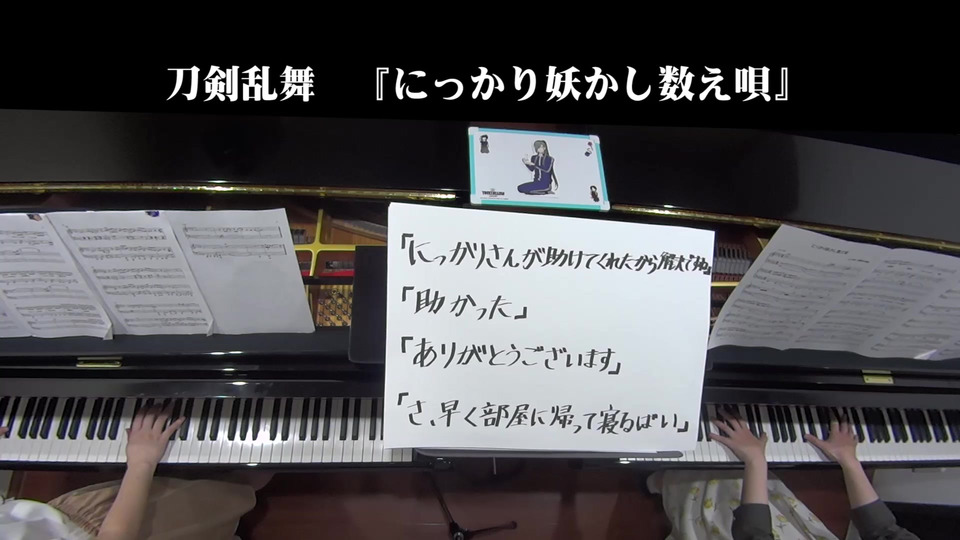 刀剣乱舞 『にっかり妖かし数え唄』
「にっかりさんが助けてくれたから大丈夫」
「助かった」
「ありがとうございます」
「さ、早く部屋に帰って寝るばい」